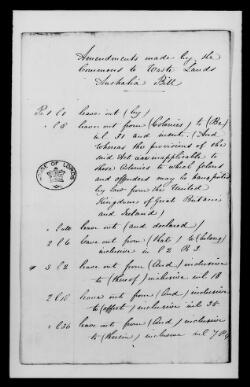 Amendments made by the
Commons to Waste Lands
Australia Bill
Pa 1 l 8 leave out (by)
" l 8 leave out from (Colonies) to (Be)
in l. 31 and insert. (And
Whereas the provisions of the
said Act are inapplicable to
those Colonies to which felons
and offenders may be transported
by Law from the United
Kingdom of Great Britain
and Ireland)
HOUSE OF LORDS
leave out (and declared)
2 l 6 leave out from (that) to (belong)
inclusive in l 2
3 l 2 leave out from (And) inclusive
to (thereof) inclusive in l 18
2 l 18 leave out from (And) inclusive
to (effect) inclusive in l 38
" l 36 leave out from (And) inclusive
to (Herein) inclusive in l 7